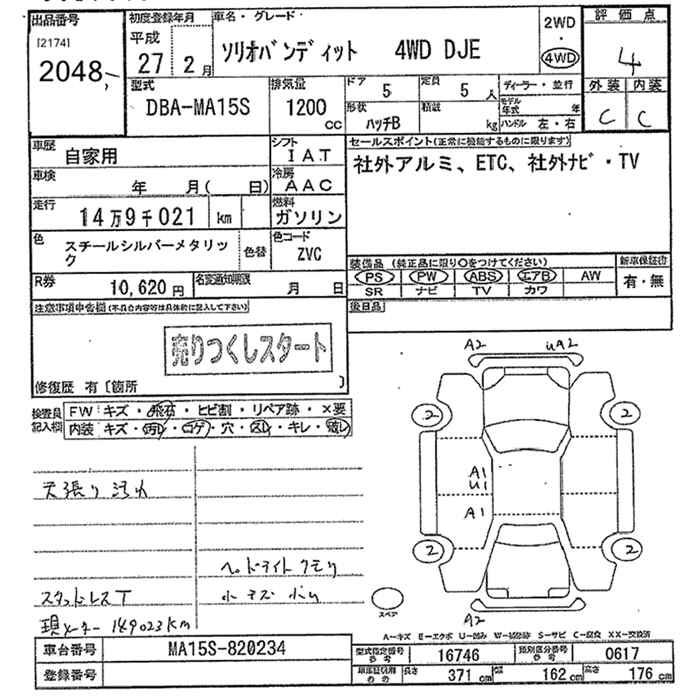 出品番号 初度登録年月 車名・グレード 2WD ・ 4WD 評価点
[2174] 平成 ソリオバンディット 4WD DJE 4
2048 27年 2月
型式 排気量 ドア 5 定員 5人 ディーラー・並行 外装 内装
DBA-MA15S 1200cc 形状 ハッチB 積載 kg モデル年式 年 C C
ハンドル 左・右
車歴 自家用 シフト IAT セールスポイント(正常に機能するものに限ります)
車検 年 月( 日) 冷房 AAC 社外アルミ、ETC、社外ナビ・TV
走行 14万9千021 km 燃料 ガソリン
色 スチールシルバーメタリック 色替 色コード ZVC
装備品 (純正品に限り○をつけてください) 新車保証書
R券 10,620円 名変通知期限 月 日 PS PW ABS エアB AW 有・無
SR ナビ TV カワ
注意事項申告欄(不具合内容等は具体的に記入して下さい) 後日品
売りつくしスタート
修復歴 有〔箇所 〕
A2 UA2
検査員記入欄 FW キズ・飛石・ヒビ割・リペア跡・×要
内装 キズ・汚れ・コゲ・穴・スレ・キレ・破れ
2 2
A1
U1
天張り汚れ A1
2 2
ヘッドライトクモリ
スタッドレスT 小キズ 小凹
スペア
A2
現メーター 149023km
A-キズ E-エクボ U-凹み W-補修跡 S-サビ C-腐食 XX-交換済
車台番号 MA15S-820234 型式指定番号 16746 類別区分番号 0617
登録番号 長さ 371cm 幅 162cm 高さ 176cm